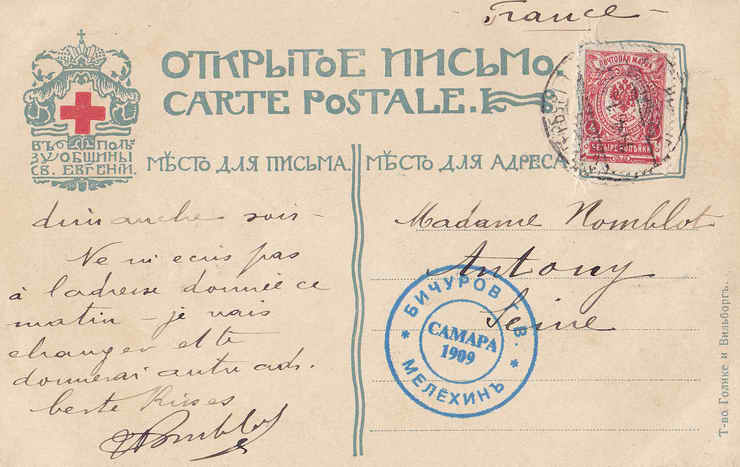 France
ОТКРЫТОЕ ПИСЬМО
CARTE POSTALE.
ВЪ ПОЛЬ
ЗУ ОБЩИНЫ
СВ. ЕВГЕНІИ.
МѢСТО ДЛЯ ПИСЬМА.
МѢСТО ДЛЯ АДРЕСА
ПОЧТОВАЯ МАРКА
ЧЕТЫРЕ КОПѢЙКИ
dimanche soir -
Ne m'ecris pas
à l'adresse donnée ce
matin - je vais
changer et te
donnerai autre adr.
beste Kisses
Nomblot
Madame Nomblot
Antony
Seine
БИЧУРОВ В.
САМАРА
1909
МЕЛЁХИНЪ
Т-во Голике и Вильборгъ.